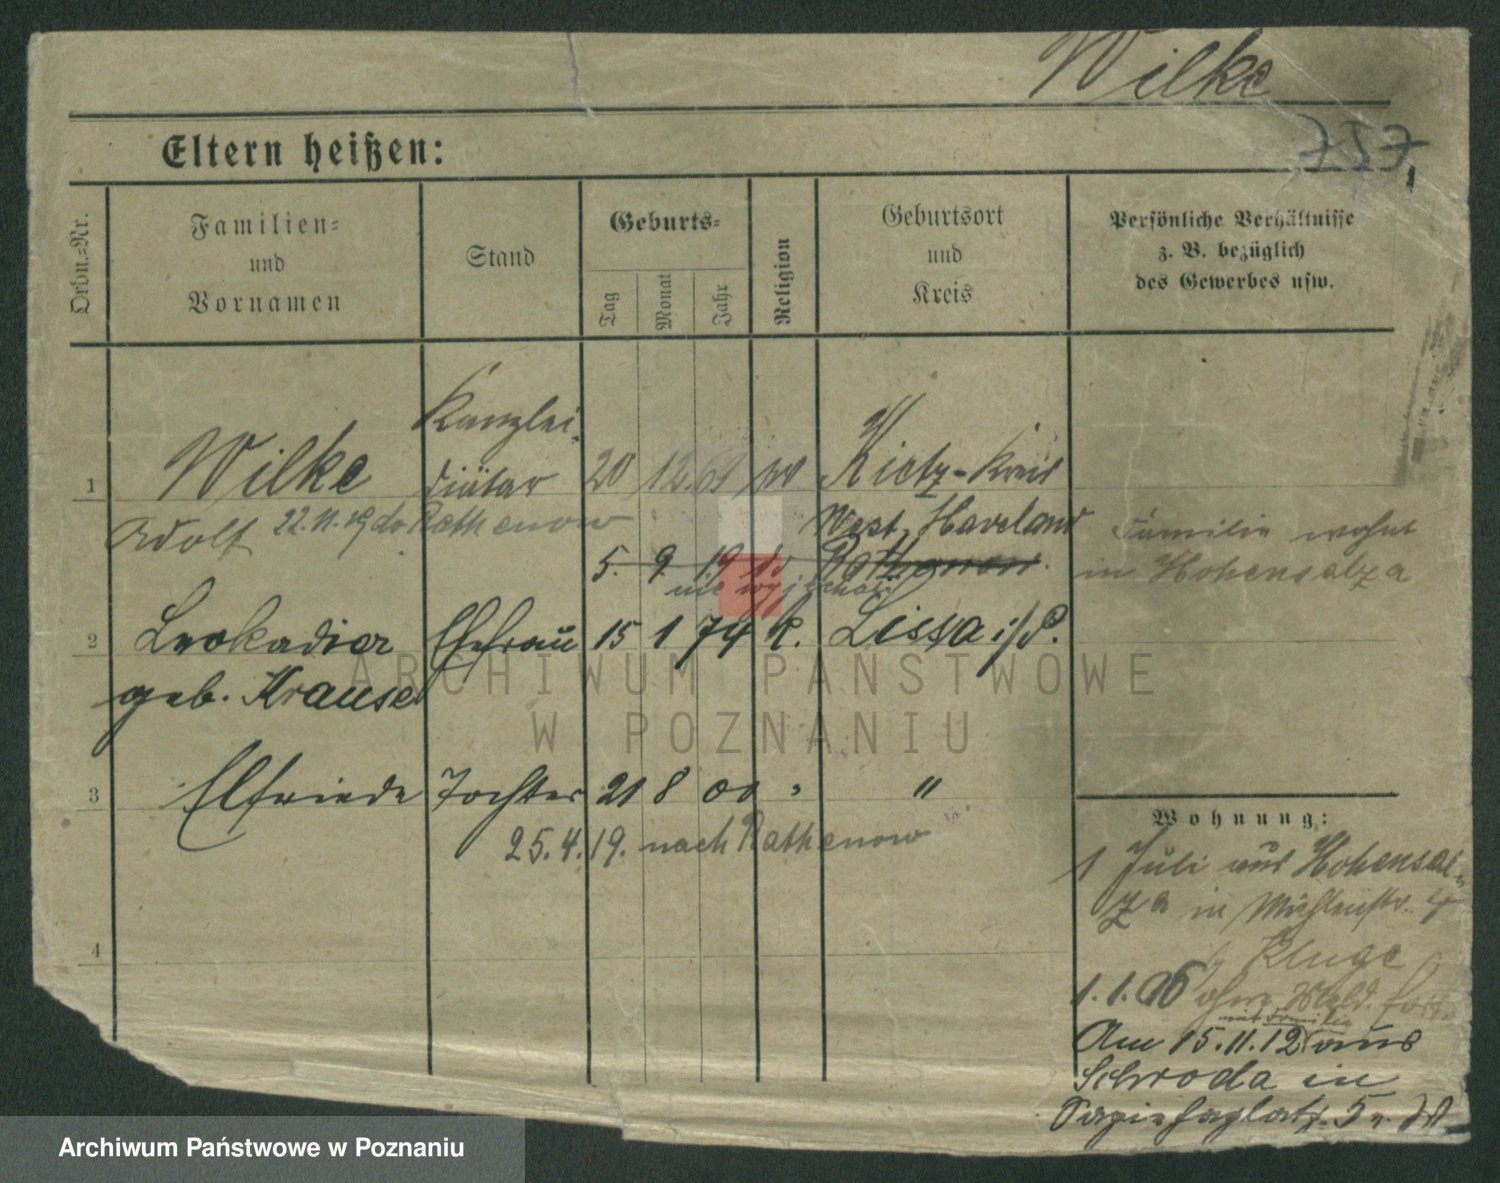 Wilke
757,
Eltern heißen:
Ordn.=Nr.
Familien=
und
Vornamen
Stand
Geburts=
Tag
Monat
Jahr
Religion
Geburtsort
und
Kreis
Persönliche Verhältnisse
z. B. bezüglich
des Gewerbes usw.
1
Wilke
Kanzlei
diätar
20 12. 69
Kietz-Kreis
West. Haveland
Adolf 22.11.19 Rathenow
5. 9. 19 Rathenow.
nie
Familie wohnt
in Hohensalza
2
Leokadia Ehefrau 15 1 74 K. Lissa i/P.
geb. Krause
3
Elfriede Tochter 21 8 00 "
25.4.19. nach Rathenow
4
Wohnung:
1 Juli aus Hohensal-
za in Mühlenstr. 4
Kluge
1.1.06 ohne Meld. fort
mit Familie
Am 15.11.12 aus
Schroda in
5
ARCHIWUM PAŃSTWOWE
W POZNANIU
Archiwum Państwowe w Poznaniu